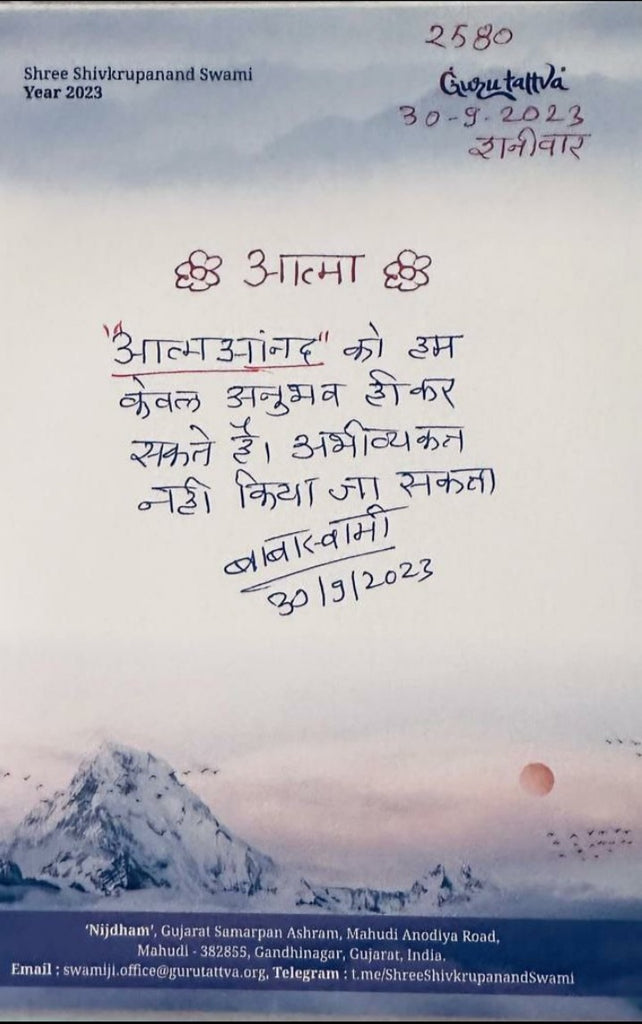 2580
Shree Shivkrupanand Swami
Year 2023
Gurutattva
30-9-2023
शनीवार
आत्मा
"आत्मआंनद" को हम
केवल अनुभव ही कर
सकते है। अभीव्यकत
नही किया जा सकता
बाबास्वामी
30/9/2023
'Nijdham', Gujarat Samarpan Ashram, Mahudi Anodiya Road,
Mahudi - 382855, Gandhinagar, Gujarat, India.
Email : swamiji.office@gurutattva.org, Telegram : t.me/ShreeShivkrupanandSwami